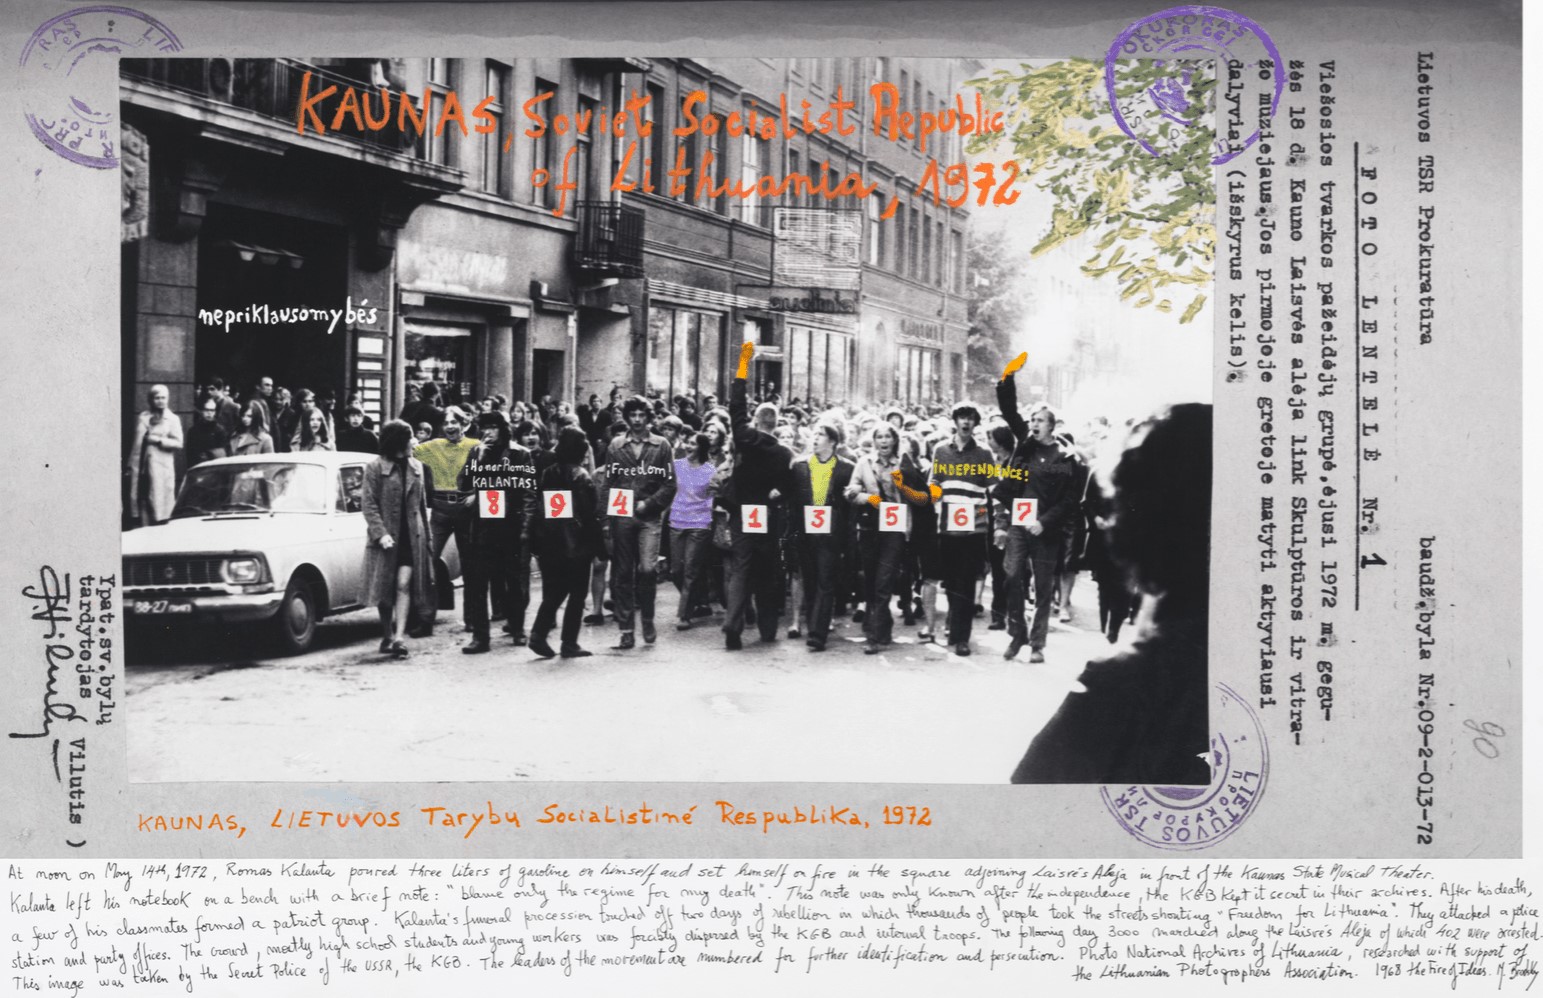 KAUNAS, Soviet Socialist Republic
of Lithuania, 1972
nepriklausomybės
¡Honor Romas
KALANTAS!
¡Freedom!
INDEPENDENCE!
8
9
4
1
3
5
6
7
Lietuvos TSR Prokuratūra baudž.byla Nr.09-2-013-72
FOTO LENTELĖ Nr. 1
Viešosios tvarkos pažeidėjų grupė,ėjusi 1972 m. gegu-
žės 18 d. Kauno Laisvės alėja link Skulptūros ir vitra-
žo muziejaus.Jos pirmojoje gretoje matyti aktyviausi
dalyviai (išskyrus kelis).
90
Ypat.sv.bylų
tardytojas Vilutis )
LIETUVOS TSR
KAUNAS, LIETUVOS Tarybų Socialistinė Respublika, 1972
At noon on May 14th, 1972, Romas Kalanta poured three liters of gasoline on himself and set himself on fire in the square adjoining Laisrės Aleja in front of the Kaunas State Musical Theater.
Kalanta left his notebook on a bench with a brief note: "blame only the regime for my death". This note was only known after the independence, the KGB kept it secret in their archives. After his death,
a few of his classmates formed a patriot group. Kalanta's funeral procession touched off two days of rebellion in which thousands of people took the streets shouting "Freedom for Lithuania". They attacked a police
station and party offices. The crowd, mostly high school students and young workers was forcibly dispersed by the KGB and internal troops. The following day 3000 marched along the Laisrės Aleja of which 402 were arrested.
This image was taken by the Secret Police of the USSR, the KGB. The leaders of the movement are numbered for further identification and persecution. Photo National Archives of Lithuania, researched with support of
the Lithuanian Photographers Association. 1968 the Fire of Ideas. M. Brodsky